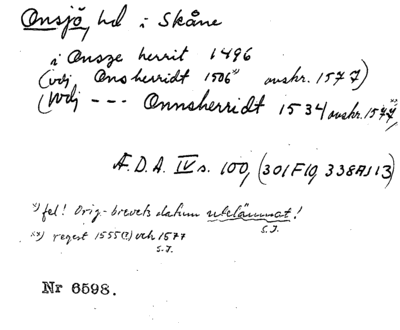 Onsjö, hd i Skåne
i Onsze herrit 1496
(vdj Onsherridt 1506x) avskr. 1577)
(Wdj --- Onnsherridt 1534 avskr. 1577xx)
Æ.D.A. IV s. 100, (301F10, 338A113)
x) fel! Orig-brevets datum utelämnat!
S.I.
xx) regest 1555(?) och 1577
S.I.
Nr 6598.